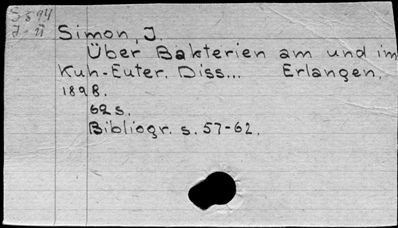 Simon, J.
Über Bakterien am und im
Kuh-Euter. Diss... Erlangen.
1898.
62 s.
Bibliogr. s. 57-62.